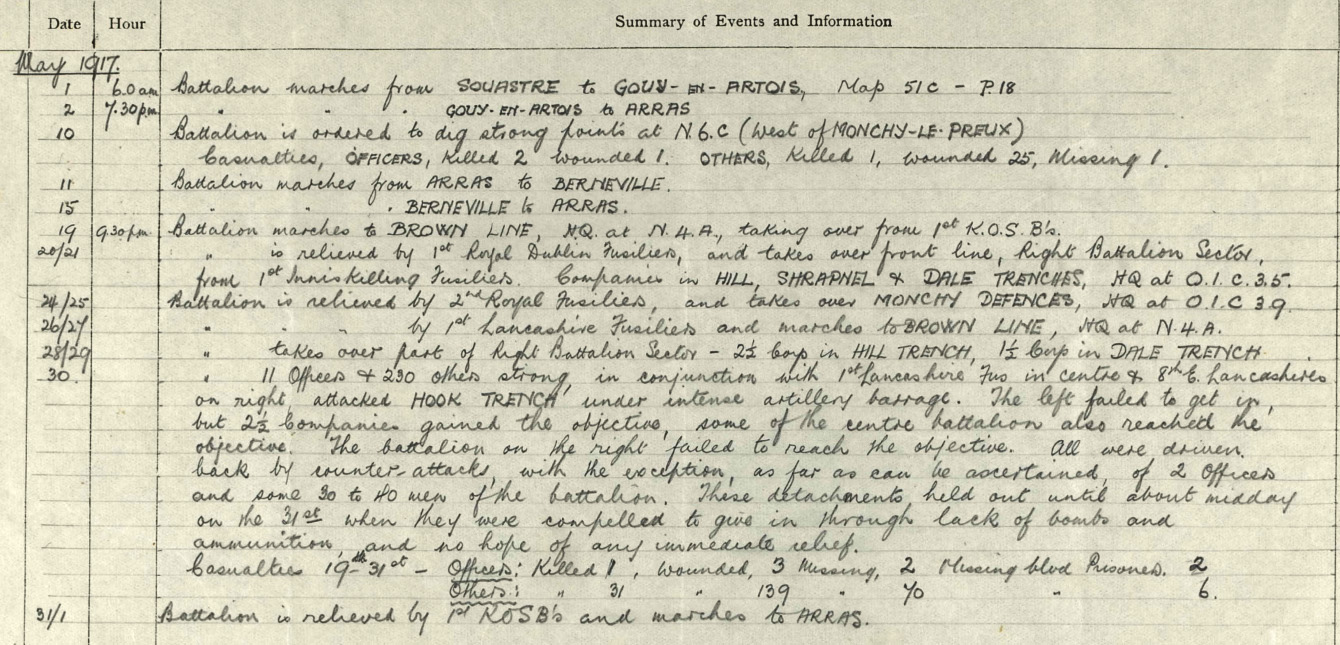 Date Hour Summary of Events and Information
May 1917.
1 6.0 am Battalion marches from SOUASTRE to GOUY-EN-ARTOIS, Map 51C - P.18
2 7.30pm " " " GOUY-EN-ARTOIS to ARRAS
10 Battalion is ordered to dig strong points at N.6.C (West of MONCHY-LE-PREUX)
Casualties, OFFICERS, Killed 2 wounded 1. OTHERS, Killed 1, wounded 25, Missing 1.
11 Battalion marches from ARRAS to BERNEVILLE.
15 " " " BERNEVILLE to ARRAS.
19 9.30pm Battalion marches to BROWN LINE, HQ. at N.4.A., taking over from 1st K.O.S.B's.
20/21 " is relieved by 1st Royal Dublin Fusiliers, and takes over front line, Right Battalion Sector,
from 1st Inniskilling Fusiliers. Companies in HILL, SHRAPNEL & DALE TRENCHES, HQ at O.I.C.3.5.
24/25 Battalion is relieved by 2nd Royal Fusiliers, and takes over MONCHY DEFENCES, HQ at O.I.C 3.9.
26/27 " " " by 1st Lancashire Fusiliers and marches to BROWN LINE, HQ at N.4.A.
28/29 " takes over part of Right Battalion Sector - 2½ Coys in HILL TRENCH, 1½ Coys in DALE TRENCH.
30. " 11 Officers & 230 others strong, in conjunction with 1st Lancashire Fus in centre & 8th E. Lancashires
on right, attacked HOOK TRENCH under intense artillery barrage. The left failed to get in,
but 2½ Companies gained the objective, some of the centre battalion also reached the
objective. The battalion on the right failed to reach the objective. All were driven
back by counter-attacks, with the exception, as far as can be ascertained, of 2 Officers
and some 30 to 40 men of the battalion. These detachments held out until about midday
on the 31st when they were compelled to give in through lack of bombs and
ammunition, and no hope of any immediate relief.
Casualties 19th-31st - Officers: Killed 1, Wounded, 3 Missing, 2 Missing blvd Prisoners. 2
Others: " 31 " 139 " 70 " 6.
31/1 Battalion is relieved by 1st KOSB's and marches to ARRAS.